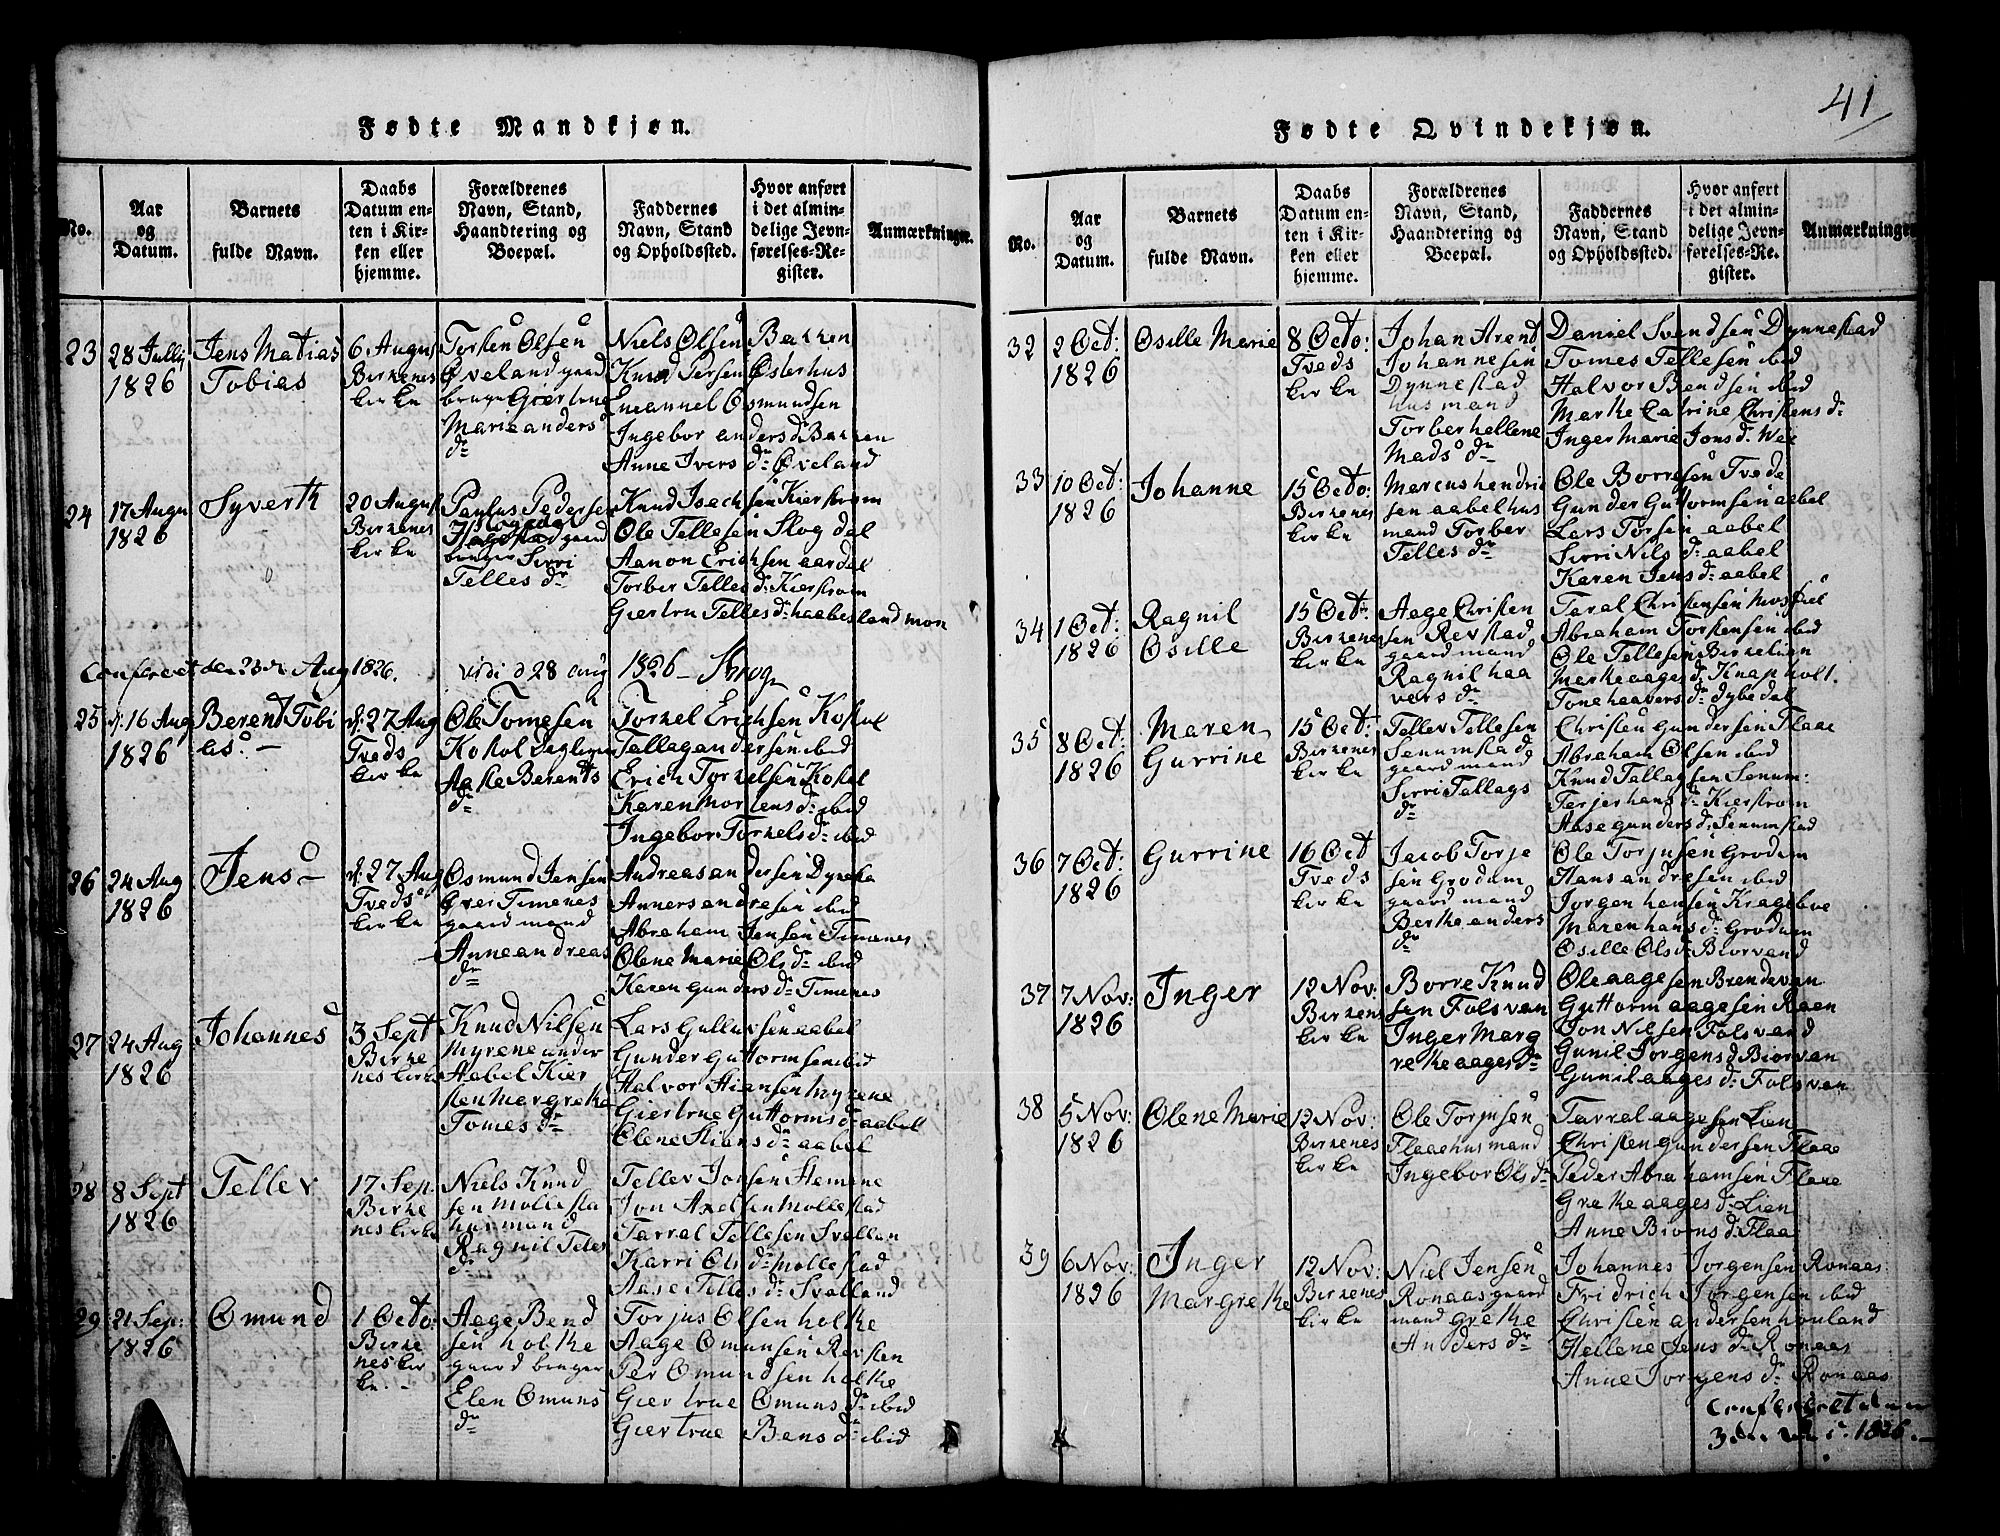 41
Fødte Mandkjøn.
No.
Aar
og
Datum.
Barnets
fulde Navn.
Daabs
Datum en-
ten i Kir-
ken eller
hjemme.
Forældrenes
Navn, Stand,
Haandtering og
Boepæl.
Faddernes
Navn, Stand
og Opholdssted.
Hvor anført
i det almin-
delige Jevn-
førelses-Re-
gister.
Anmærkninger.
23
28 Jullij
1826
Jens Matias
Tobias
6 August
Birkenes
kirke
Torsten Olsen
Øveland gaard
bruger Giertrue
Marie anders
dr
Niels Olsen Bakken
Knud Tersen Østerhus
Emannel Osmundsen
Ingebor anders d: Bakken
Anne Ivers dr Øveland
24
17 Augu
1826
Syverth
20 August
Birkenes
kirke
Paulus Pedersen
gaard
bruger Sirri
Telles dr
Knud Isachsen Kierstrom
Ole Tellesen Skogdal
Aanon Erichsen aardal
Torber Telles d: Kierstrom
Giertru Telles d: haabesland mon
Confereret den 23de Aug 1826.
vidi d 28 aug 1826
25
d: 16 Aug
1826
Berent Tobi
as.
d: 27 Aug
Tveds
kirke
Ole Tomesen
Kostøl
Aaske Berents
dr
Torkel Erichsen Kostøl
Tallag andersen ibid
Erich Torkelsen Kostøl
Karen Mortens d: ibid
Ingebor Torkels d: ibid
26
24 Aug
1826
Jens
d: 27 Aug
Tveds
kirke
Osmund Jensen
Over Timenes
gaard mand
Anne andreas
dr
Andreas andersen Dyneka
Anners andresen ibid
Abraham Jensen Timenes
Olene Marie Ols d: ibid
Karen gunders d: Timenes
27
24 Aug
1826
Johannes
3 Sept
Birke
nes kirke
Knud Nilsen
Myrene under
Aabel Kier
sten Margrethe
Tomes dr
Lars Gullufsen aabel
Gunder guttormsen ibid
Halvor Stiansen Myrene
Giertrue guttorms d: aabel
Olene Stians dr aabel
28
8 Sept
1826
Tellev
17 Sep.
Birke
nes kirke
Niels Knud
sen Mollesta
husmand
Ragnil Teles
dr
Tellev Jonsen Hemene
Jon Axelsen Mollestad
Tarral Tellesen Svalland
Karri Ols dr Mollestad
Aase Telles dr Svalland
29
21 Sep:
1826
Omund
1 Octo:
Birke
nes kir
ke.
Aage Bend
sen holthe
gaard bruger
Elen Omuns
dr
Torjus Olsen holthe
Aage Omunsen Revsten
Per Omundsen holthe
Giertrue Omuns dr ibid
Giertrue Bens d: ibid
Fødte Qvindekjøn.
No.
Aar
og
Datum.
Barnets
fulde Navn.
Daabs
Datum en-
ten i Kir-
ken eller
hjemme.
Forældrenes
Navn, Stand,
Haandtering og
Boepæl.
Faddernes
Navn, Stand
og Opholdssted.
Hvor anført
i det almin-
delige Jevn-
førelses-Re-
gister.
Anmærkninger
32
2 Oct:
1826
Osille Marie
8 Octo:
Tveds
kirke
Johan Arent
Johannesen
Dynnestad
husmand
Torber hellene
Mads dr
Daniel Svendsen Dynnestad
Tomes Tellesen ibid
Halvor Bendsen ibid
Marthe Catrine Christens d:
Inger Marie Jons d: Wee
33
10 Oct:
1826
Johanne
15 Octo:
Birkenes
kirke
Marcus hendric
sen aabel hus
mand Torber
Telles dr
Ole Borresen Tvede
Gunder Guttormsen aabel
Lars Torsen aabel
Sirri Nils d: aabel
Karen Jens d: aabel
34
1 Oct:
1826
Ragnil
Osille
15 Octo
Birkenes
kirke
Aage Christen
sen Revstad
gaardmand
Ragnil haa
vers dr
Taral Christensen
Abraham Torstensen ibid
Ole Tellesen Birkelien
Merthe aages d: Knapholt.
Tone haavers d: dybedal
35
8 Oct:
1826
Maren
Gurrine
15 Oct:
Birkenes
kirke
Tellev Tellesen
Senumstad
gaard mand
Sirri Tallags
dr
Christen Gundersen Flaae
Abraham Olsen ibid
Knud Tallagsen Senum:
Terjer hans d: Kierstrom
Aase gunders d: Senumstad
36
7 Oct:
1826
Gurrine
16 Oct
Tveds
kirke
Jacob Torje
sen Grodum
gaard mand
Berthe anders
dr
Ole Torjusen Grodum
Hans andresen ibid
Jorgen hansen Krageboe
Maren hans d: Grodum
Osille Ols d: Biorvand
37
7 Nov:
1826
Inger
12 Nov:
Birkenes
kirke
Borre Knud
sen Folsvan
Inger Marg
rethe aages dr
Ole aagesen Brendevan
Guttorm aagesen Raen
Jon Nilsen Folsvand
Gunil Jorgens d: Biorvan
Gunil aages d: Folsvan
38
5 Nov:
1826
Olene Marie
12 Nov:
Birkenes
kirke
Ole Torjusen
Flaae husmand
Ingebor Ols dr
Tarral aagesen Lien
Christen gundersen Flaae
Peder Abrahamsen Flaae
Grethe aages d: Lien
Anne Biorns d: Flaae
39
6 Nov:
1826
Inger
Margrethe
12 Nov:
Birkenes
kirke
Niel Jensen
Ronaas gaard
mand grethe
Anders dr
Johannes Jorgensen Ronaas
Fridrich Jorgensen ibid
Christen andersen houland
Hellene Jens dr Ronaas
Anne Jorgens dr Ronaas
Confereret den
1826.